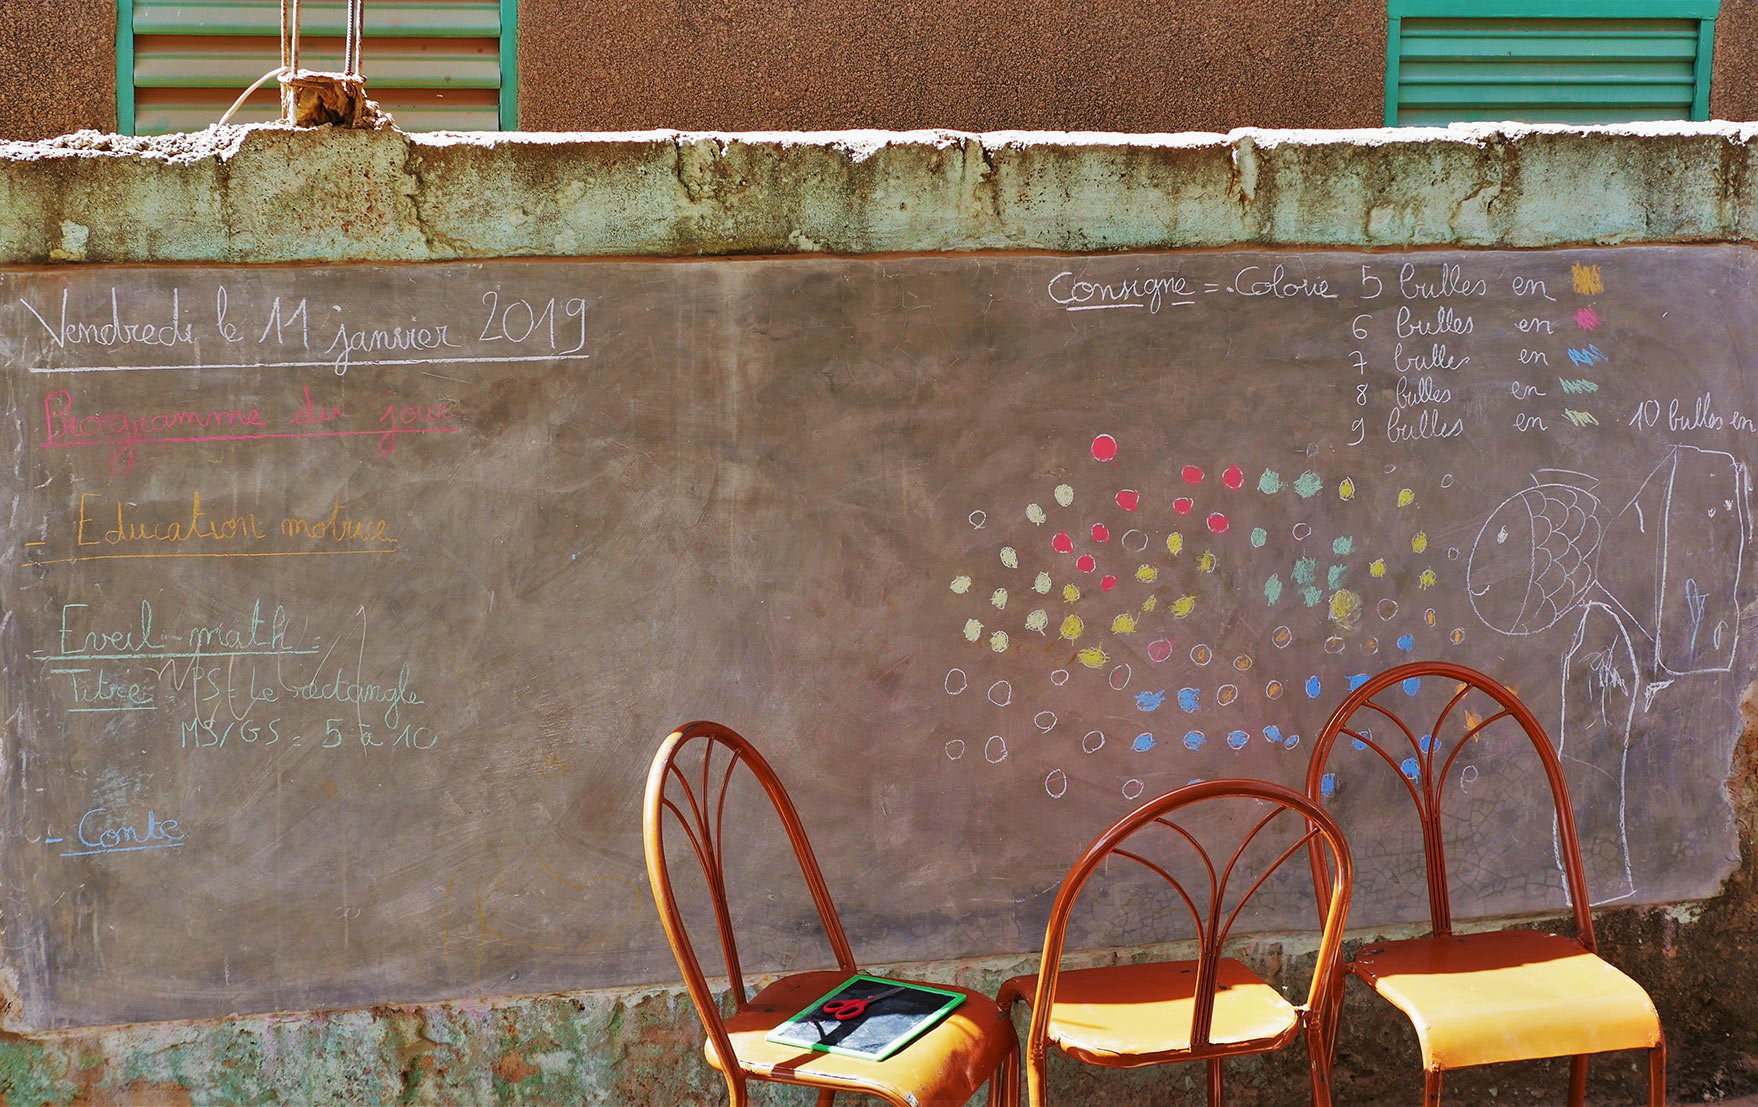 Vendredi le 11 janvier 2019
Programme du jour
- Education motrice
Eveil-math :
Titre : PS = Le rectangle
MS/GS = 5 à 10
- Conte
Consigne = . Colorie 5 bulles en
6 bulles en
7 bulles en
8 bulles en
9 bulles en
10 bulles en